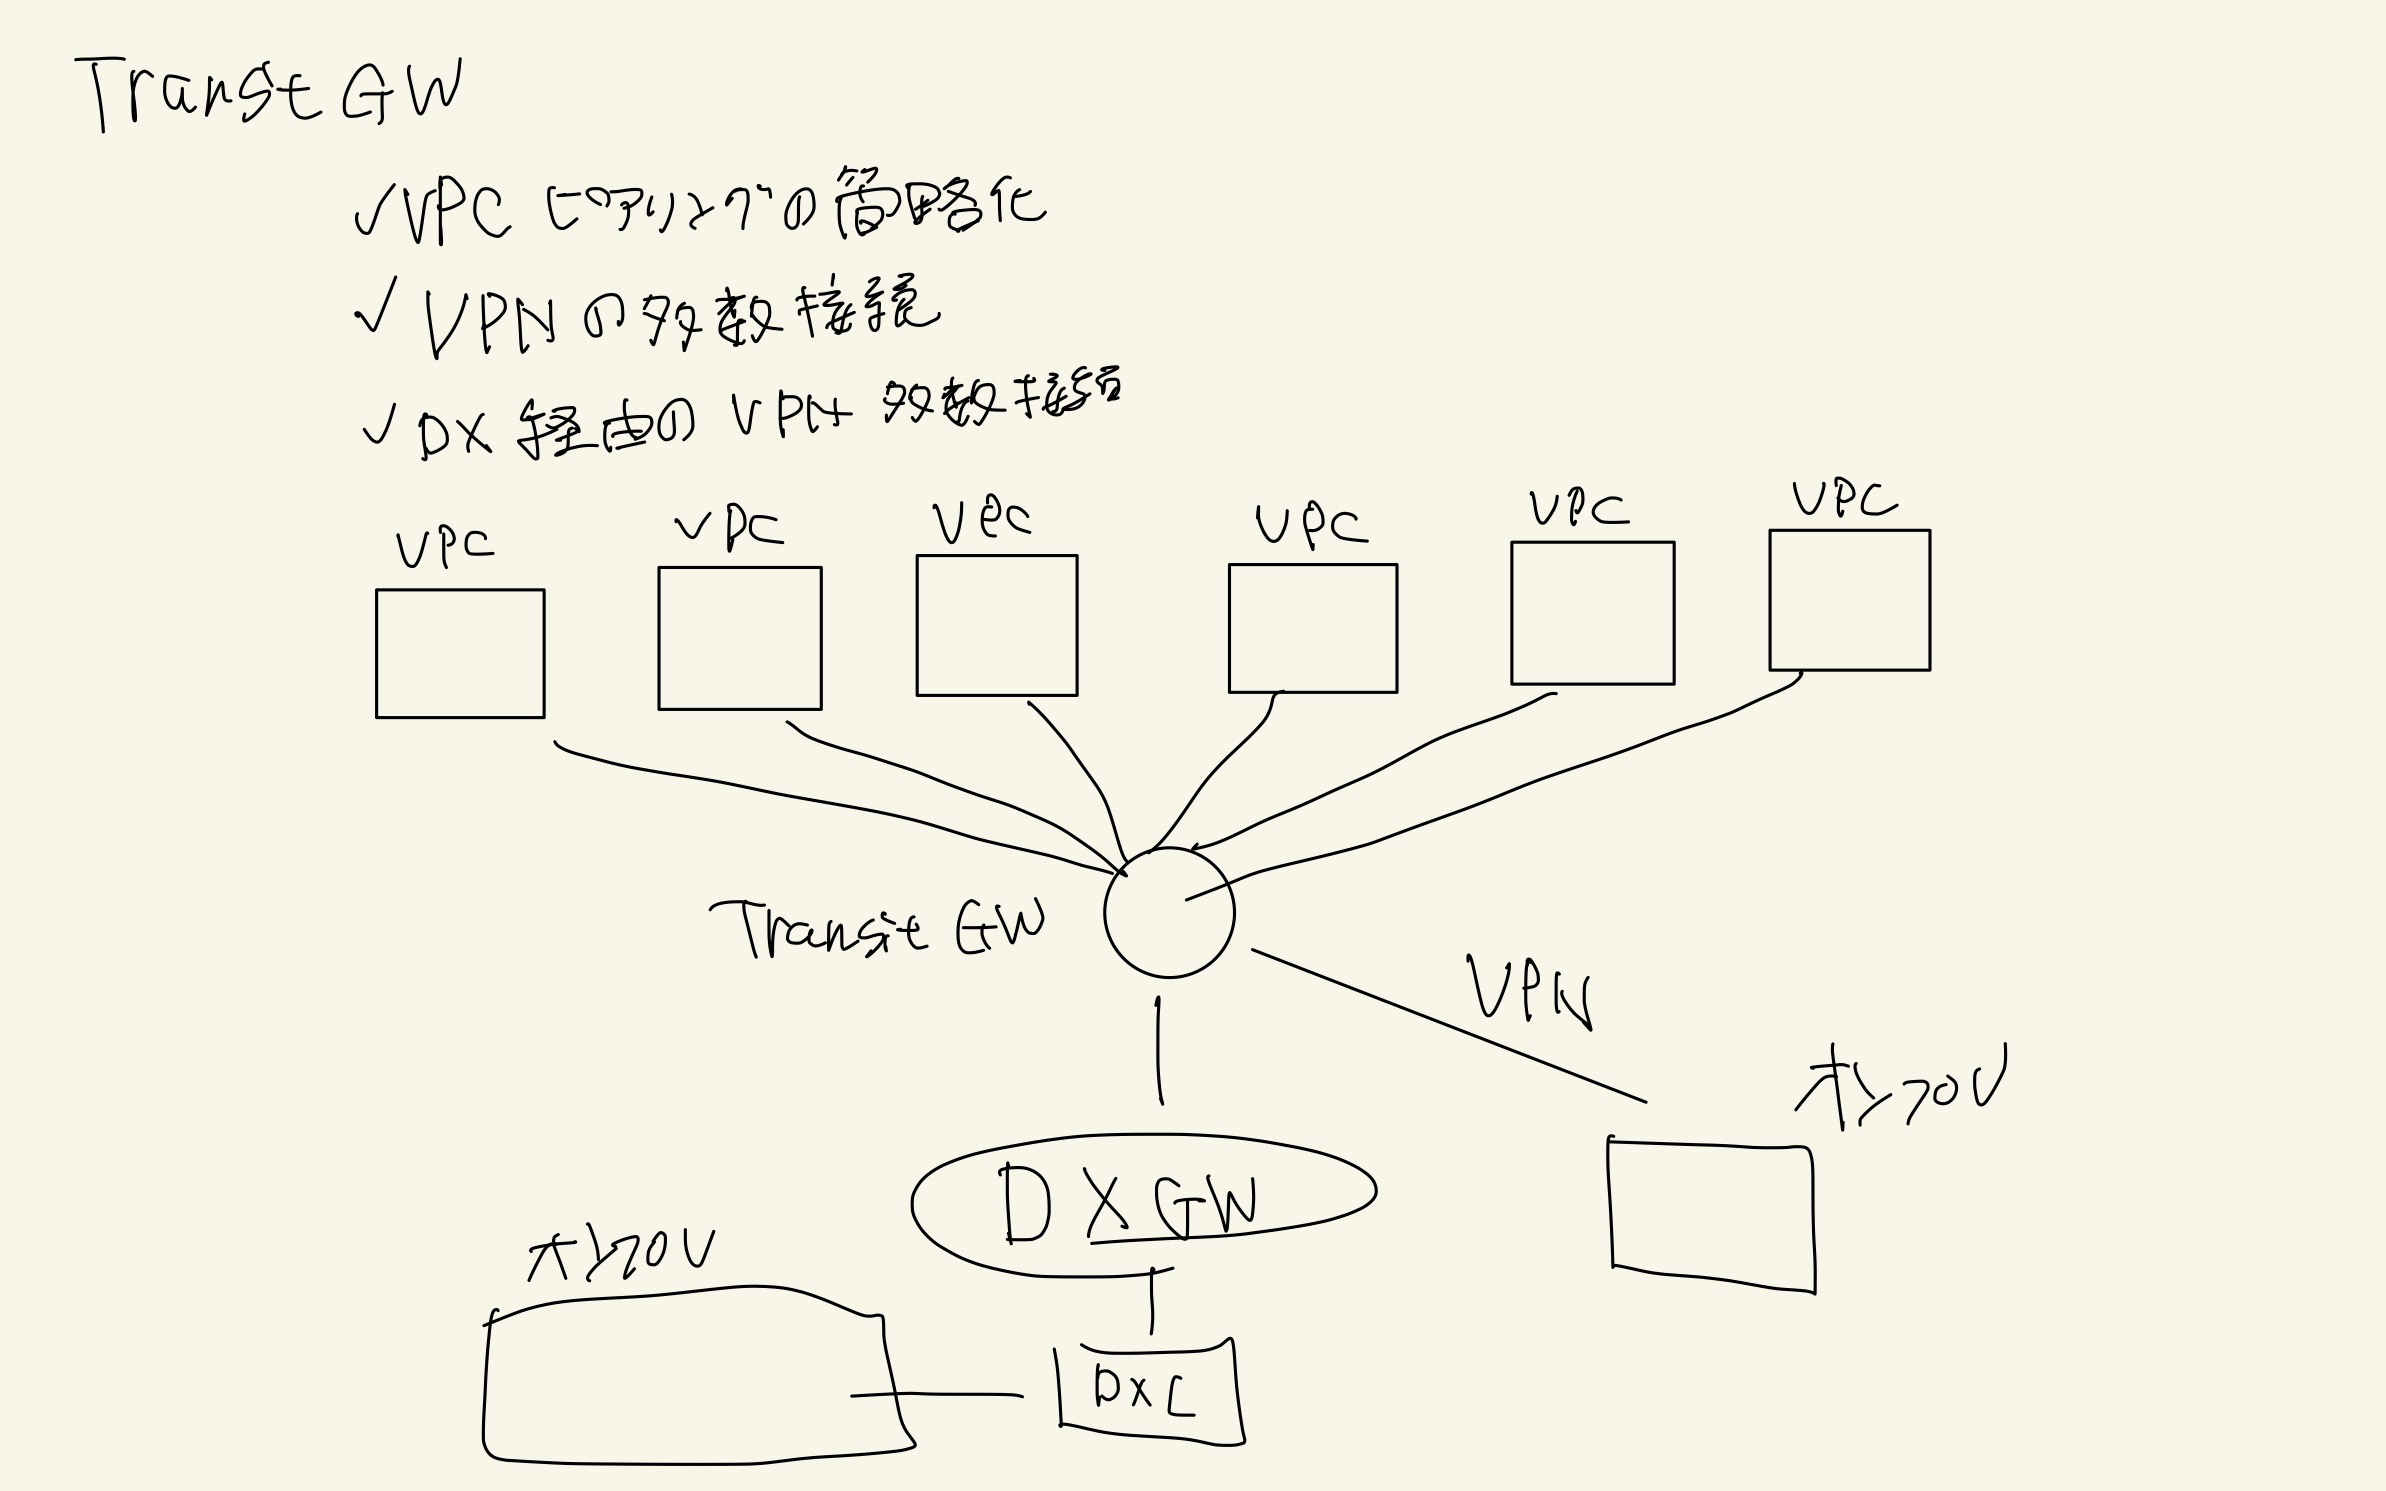 Transit GW
✓VPC ピアリングの簡略化
✓ VPNの複数接続
✓ DX 経由の VPN 複数接続
VPC
VPC
VPC
VPC
VPC
VPC
Transit GW
VPN
オンプレ
DXGW
オンプレ
DXC